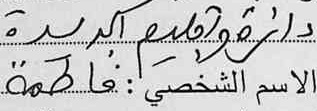 دائرة وإقليم اكدسدة
الاسم الشخصي : فاطمة